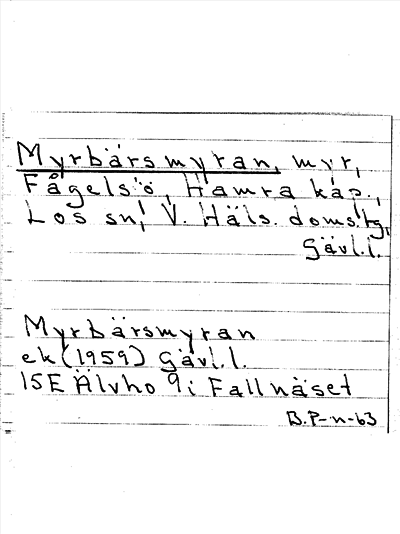 Myrbärsmyran, myr,
Fågelsö, Hamra kåp.,
Los sn, V. Häls. doms.tg,
Gävl.l.
Myrbärsmyran
ek (1959) Gävl.l.
15E Älvho 9i Fallnäset
B.P-n-63